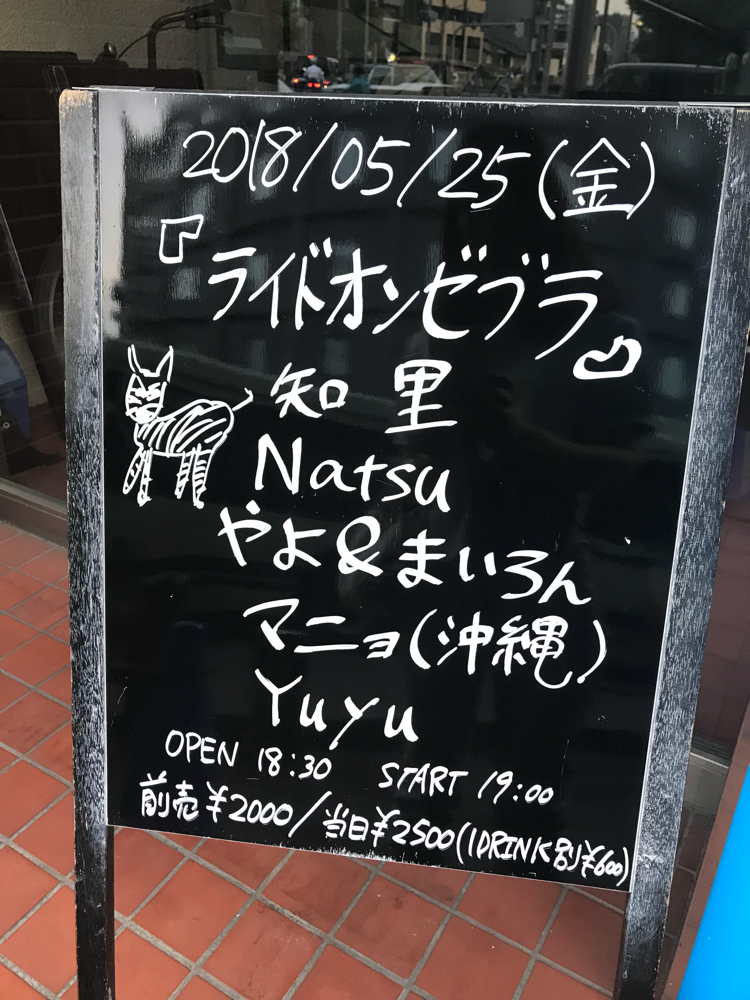 2018/05/25(金)
『ライドオンゼブラ』
知里
Natsu
やよ&まいろん
マニョ(沖縄)
Yuyu
OPEN 18:30 START 19:00
前売¥2000/当日¥2500(1DRINK別¥600)